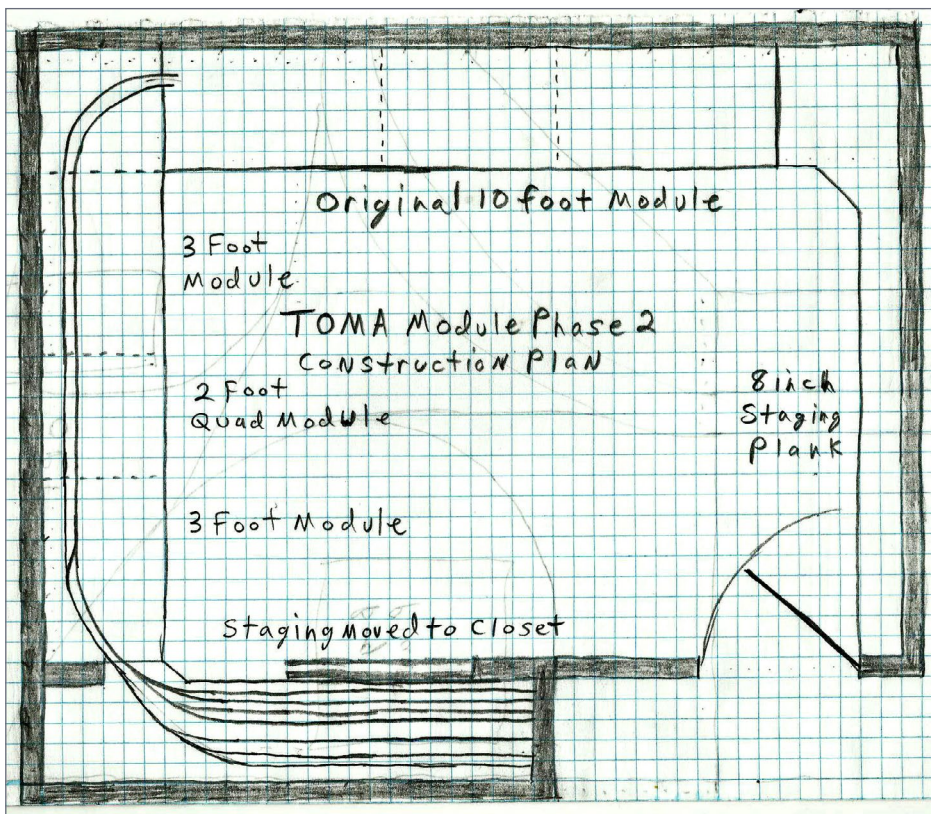 Original 10 foot Module
3 Foot
Module
TOMA Module Phase 2
Construction Plan
2 Foot
Quad Module
8 inch
Staging
Plank
3 Foot Module
Staging Moved to Closet